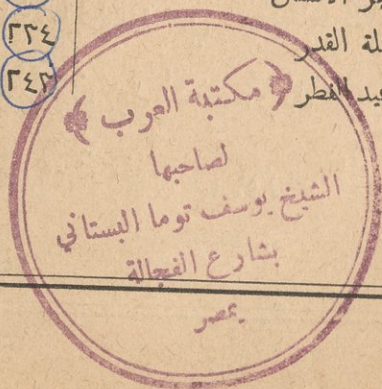 ٢٢٤
لة القدر
٢٤٢
عيد الفطر
مكتبة العرب
لصاحبها
الشيخ يوسف توما البستاني
بشارع الفجالة
بمصر